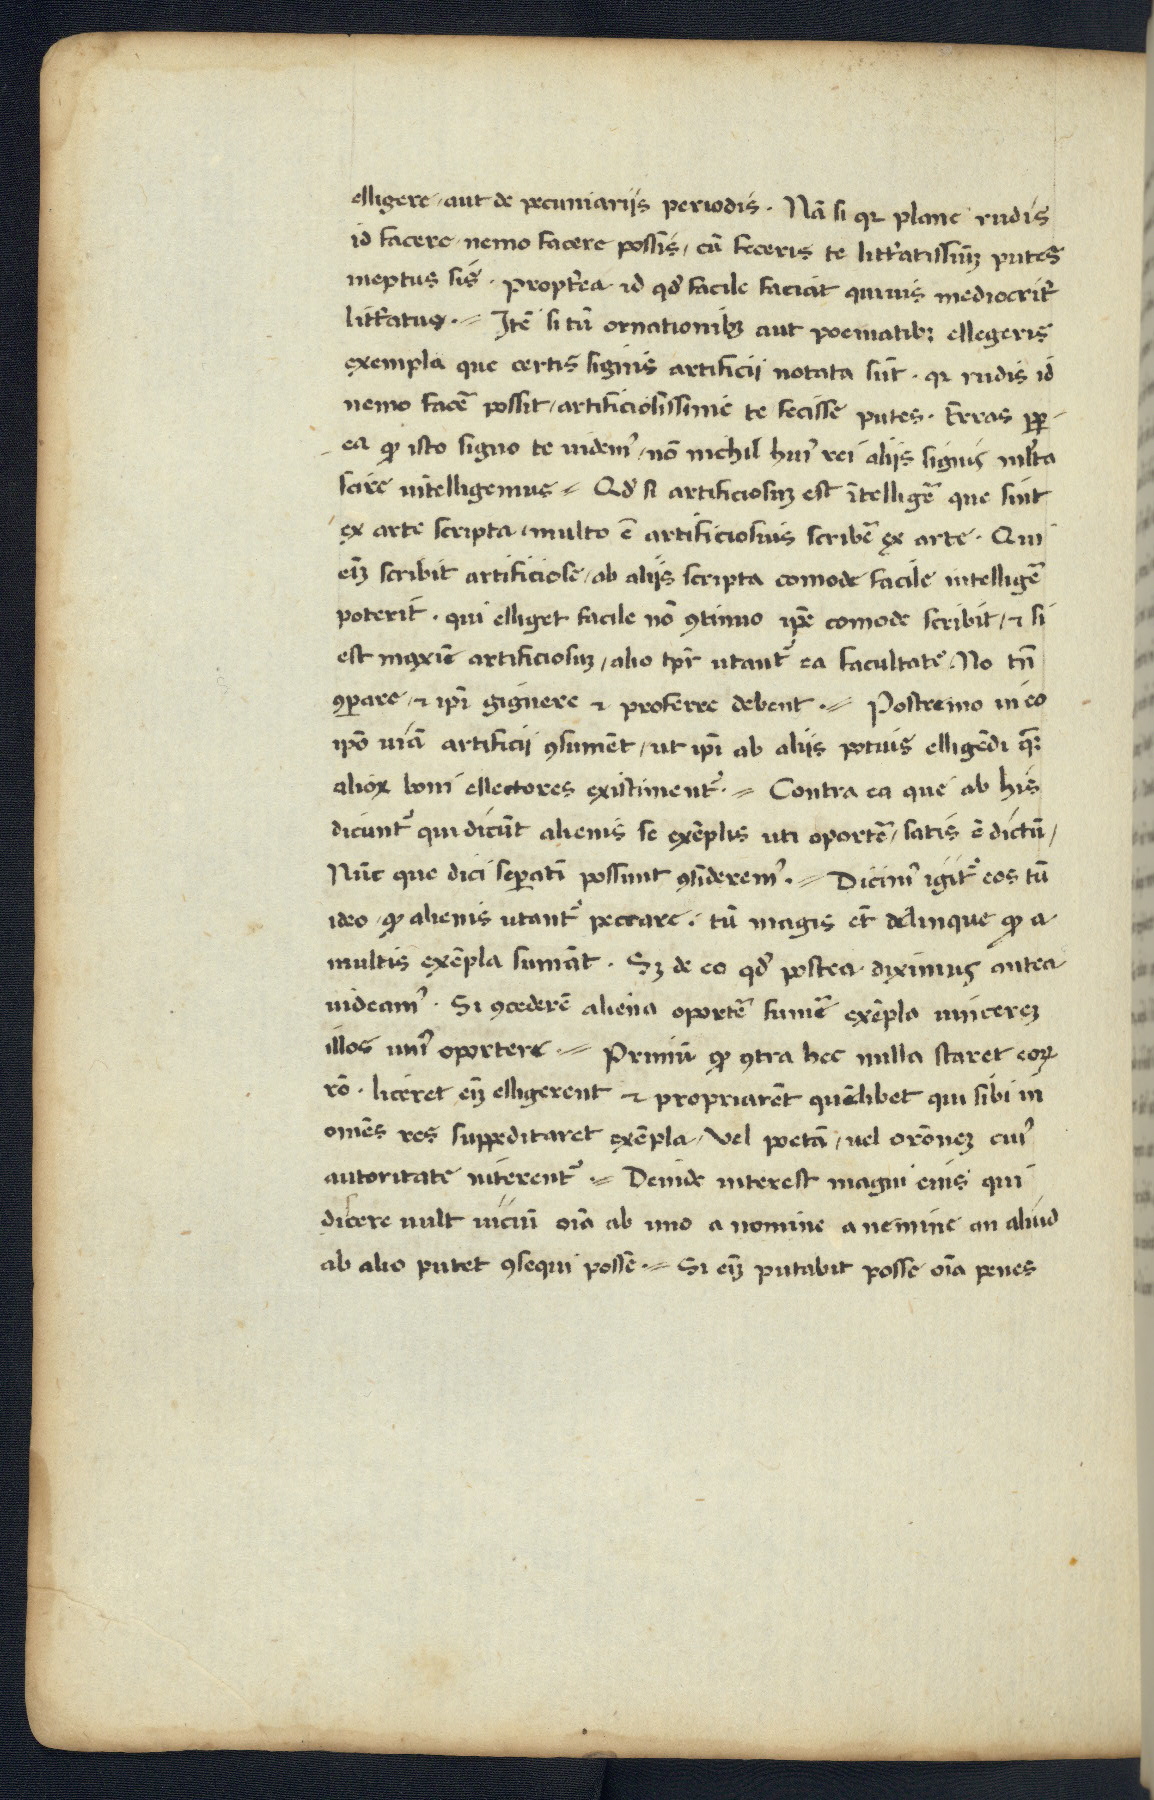 elligere / aut de pecuniarijs periodis . Nā si qꝛ plane rudis
id facere / nemo facere possis / cū feceris te litt̓atissimūꝫ putes
ineptus sis . propt̓ea id qd̓ facile faciāt quiuis mediocrit̓
litt̓atus . // Itē si tū ornationibꝫ aut poematibꝫ ellegeris
exempla que certis signis artificij notata sūt . qꝛ rudis id
nemo facē possit / artificiosissime te fecisse putes . Erras ꝓp
ea ꝙ isto signo te uidemꝰ / nō nichil huiꝰ rei alijs signis mlta
scire intelligemus // Qd̓ si artificiosūꝫ est ītelligē que sint
ex arte scripta / multo ē artificiosius scribē ex arte . Qui
eīꝫ scribit artificiose / ab alijs scripta comode facile intelligē
poterit . qui elliget facile nō ꝯtinuo ip̄e comode scribit / et si
est maxīe artificiosūꝫ / alio tp̄r utant᷑ ea facultate / No tn̄
ꝯparare / et ip̄i gignere et proferre debent . // Postremo in eo
ip̄o uiā artificij ꝯsumēt / ut ip̄i ab alijs potius elligēdi qꝫ
alioꝝ boni ellectores existiment᷑ . // Contra ea que ab his
dicunt᷑ qui dicūt alienis se exēplis uti oportē / satis ē dictū /
Nūc que dici sepatī possunt ꝯsideremꝰ . // Dicimꝰ igit᷑ eos tū
ideo / ꝙ alienis utant᷑ peccare . tū magis et̄ delinque ꝙ a
multis exēpla sumāt . Sꝫ de eo qd̓ postea diximus antea
uideamꝰ . Si ꝯcederē aliena oportē sumē exēpla uincereꝫ
illos uniꝰ oportere . // Primū ꝙ ꝯtra hec nulla staret eoꝝ
rō . liceret eīꝫ elligerent et propriarēt quēlibet qui sibi in
omēs res suppeditaret exēpla / vel poetā / uel orōneꝫ cuiꝰ
autoritate niterent᷑ // Deinde interest magni eius qui
dicere uult uiciū oīa ab uno a nomine a nemine an aliud
ab alio putet ꝯsequi posse . // Si eīꝫ putabit posse oīa penes